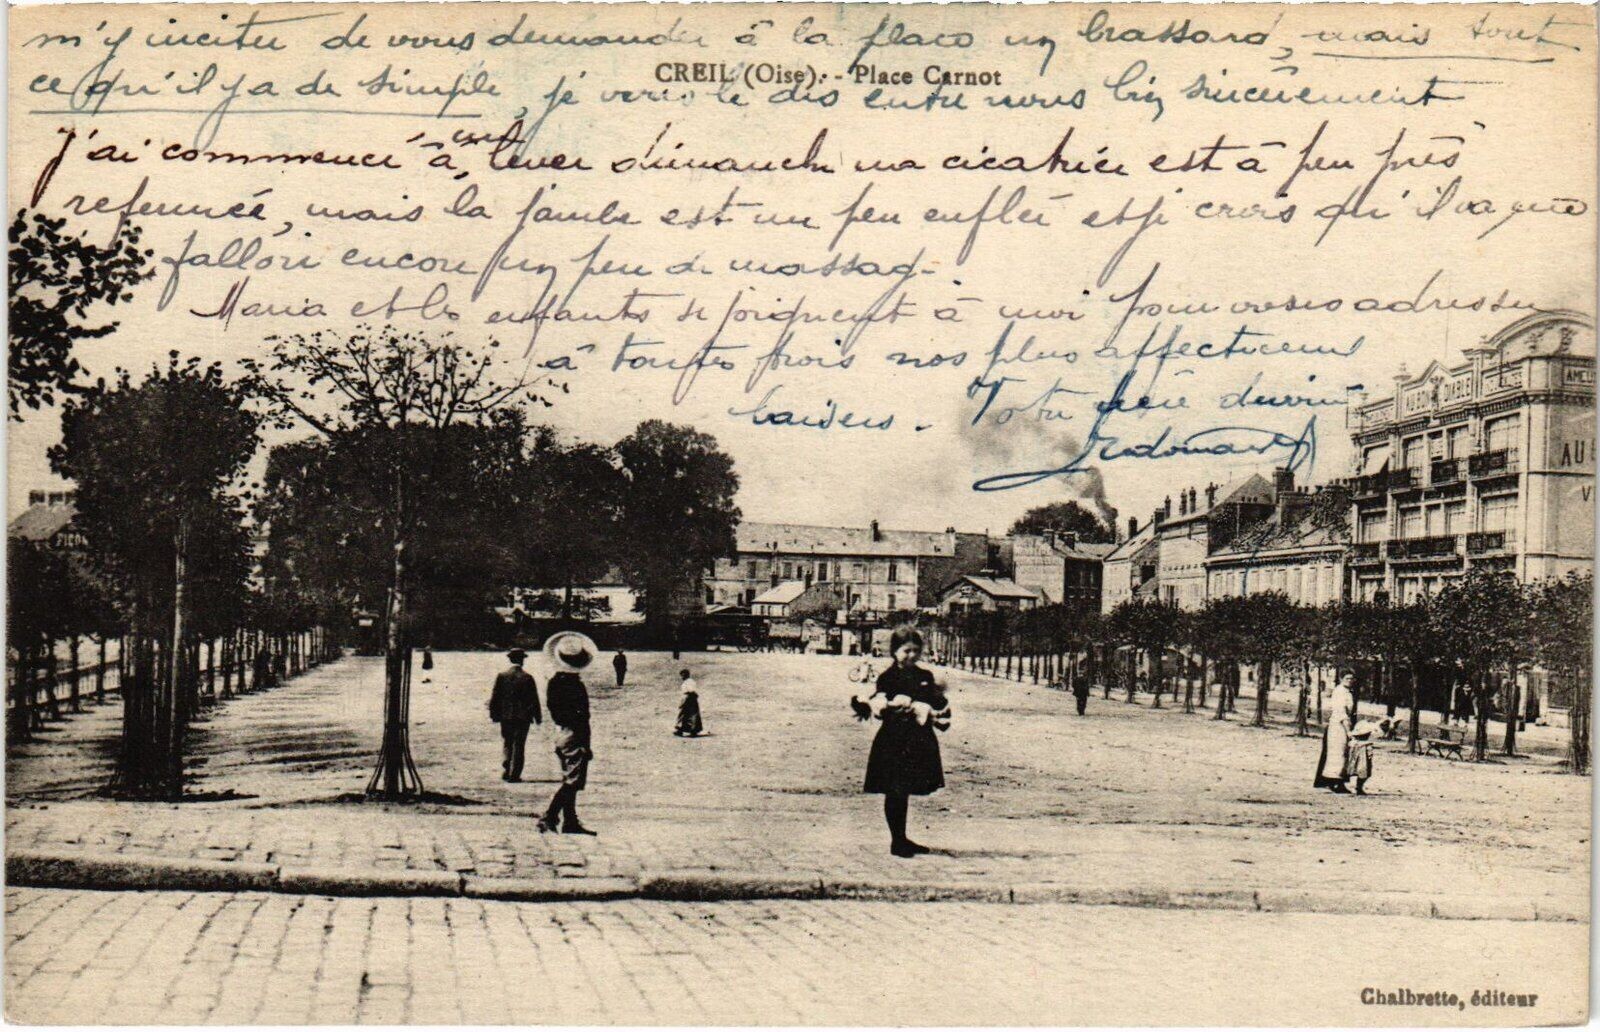 m'y inciter de vous demander à la place un brassard, mais tout
CREIL (Oise). - Place Carnot
ce qu'il y a de simple, je vous le dis entre nous bien sincèrement
J'ai commencé à me lever dimanche ma cicatrice est à peu près
refermée, mais la jambe est un peu enflée et je crois qu'il va me
falloir encore un peu de massage.
Maria et les enfants se joignent à moi pour vous adresser
à toutes trois nos plus affectueux
baisers. Votre frère dévoué
Edouard
AU BON DIABLE
AU
V
Chalbrette, éditeur